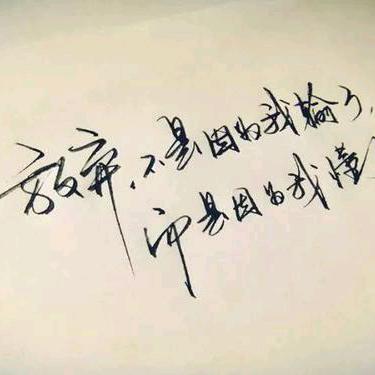 放弃,不是因为我输了,
而是因为我懂